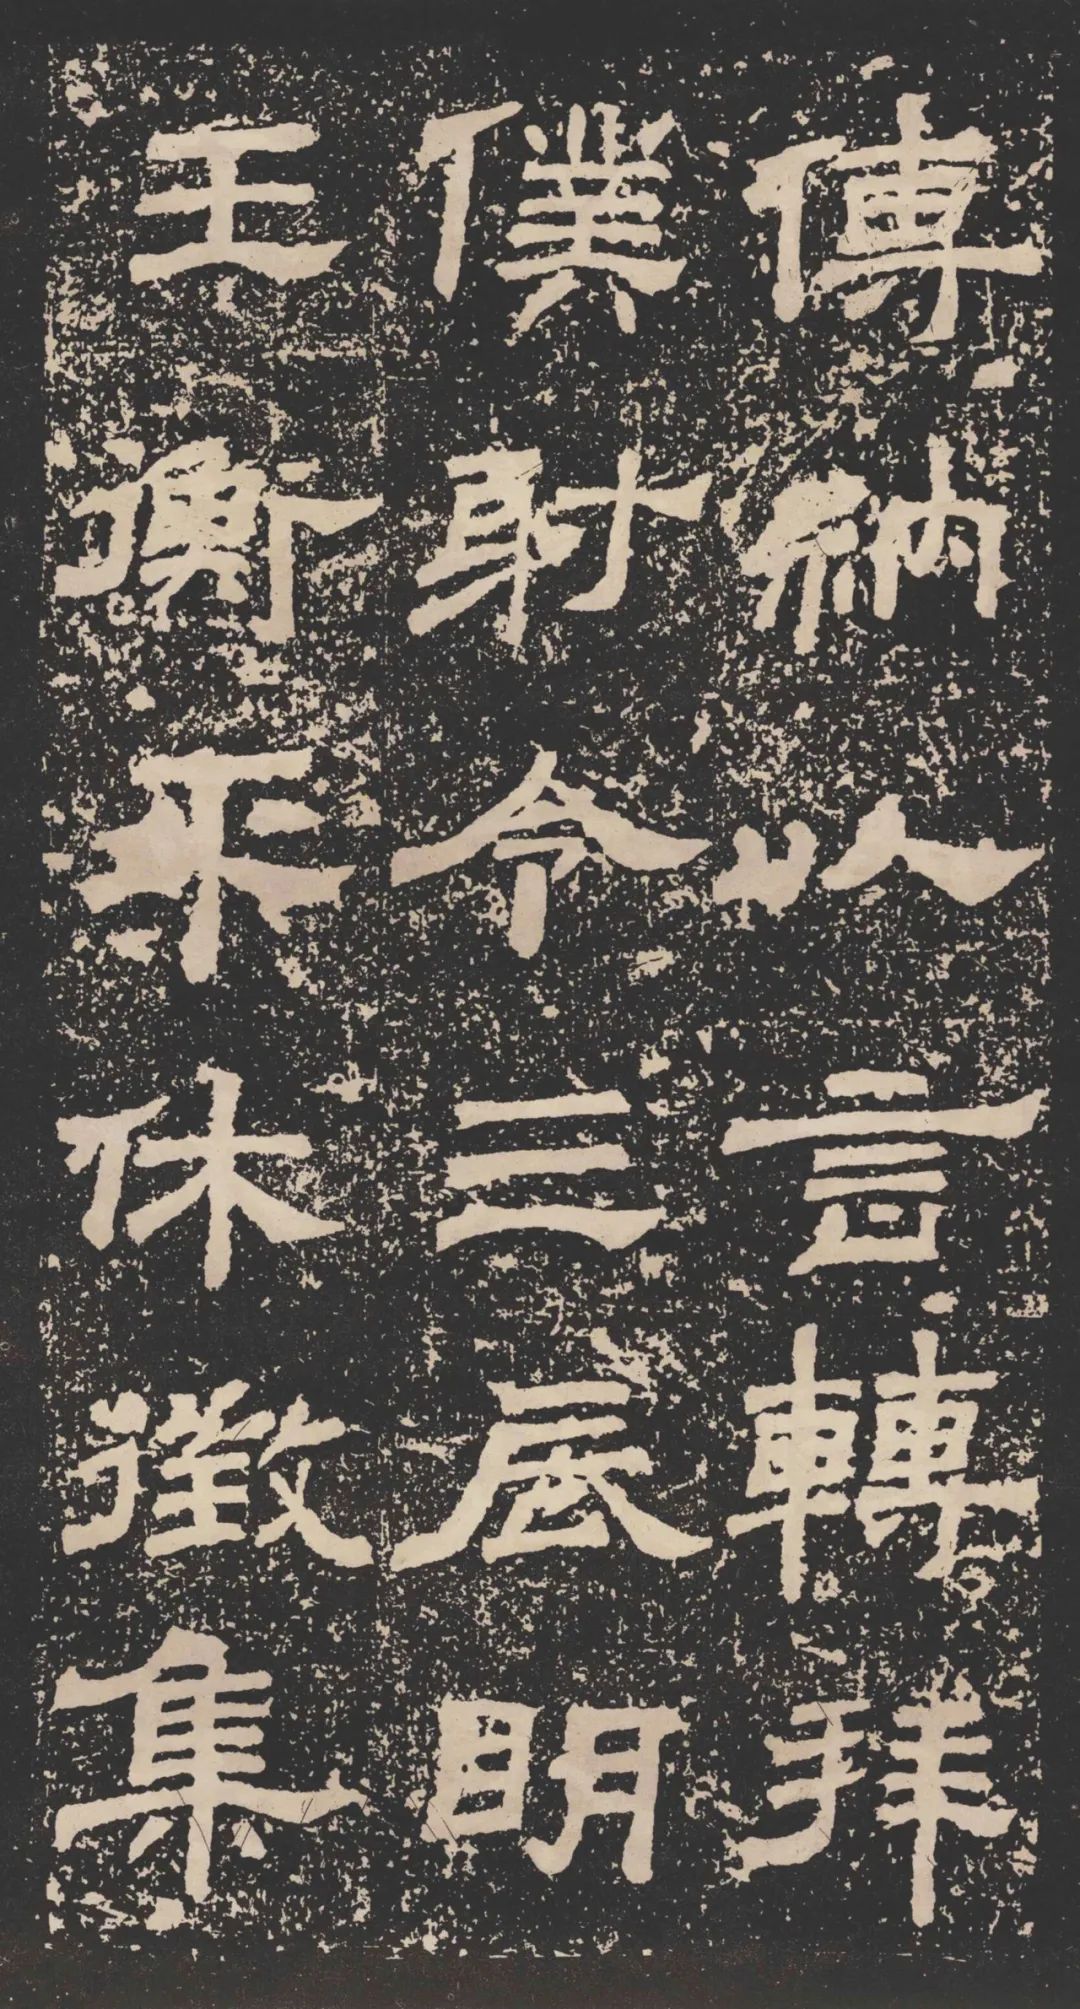 傅納以言轉拜
僕射令三辰眀
王衡平休徵集